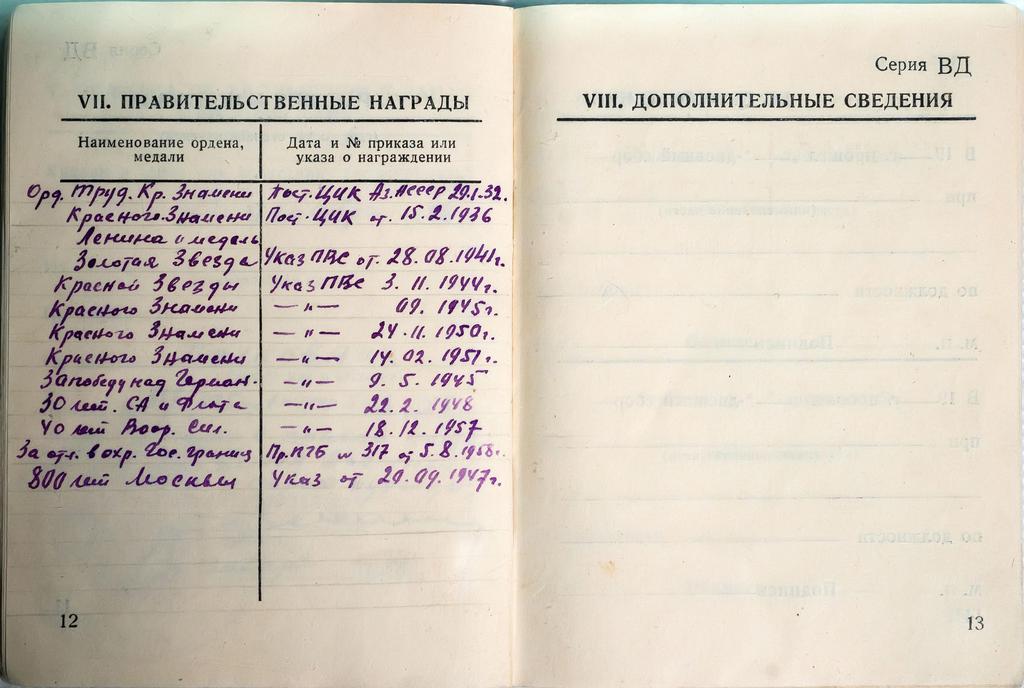 VII. ПРАВИТЕЛЬСТВЕННЫЕ НАГРАДЫ
Наименование ордена, медали
Дата и № приказа или указа о награждении
Орд. Труд. Кр. Знамени Пост. ЦИК Аз. ССР 29.1.32.
Красного Знамени Пост. ЦИК от 15.2.1936
Ленина и медаль
Золотая Звезда Указ ПВС от 28.08.1941г.
Красной Звезды Указ ПВС 3.11.1944г.
Красного Знамени —"— 09.1945г.
Красного Знамени —"— 24.11.1950г.
Красного Знамени —"— 14.02.1951г.
За победу над Герман. —"— 9.5.1945
30 лет. СА и Флота —"— 22.2.1948
40 лет Воор. Сил. —"— 18.12.1957
За отл. в охр. Гос. границ Пр. КГБ № 317 от 5.8.1958г.
800 лет Москвы Указ от 20.09.1947г.
12
Серия ВД
VIII. ДОПОЛНИТЕЛЬНЫЕ СВЕДЕНИЯ
13